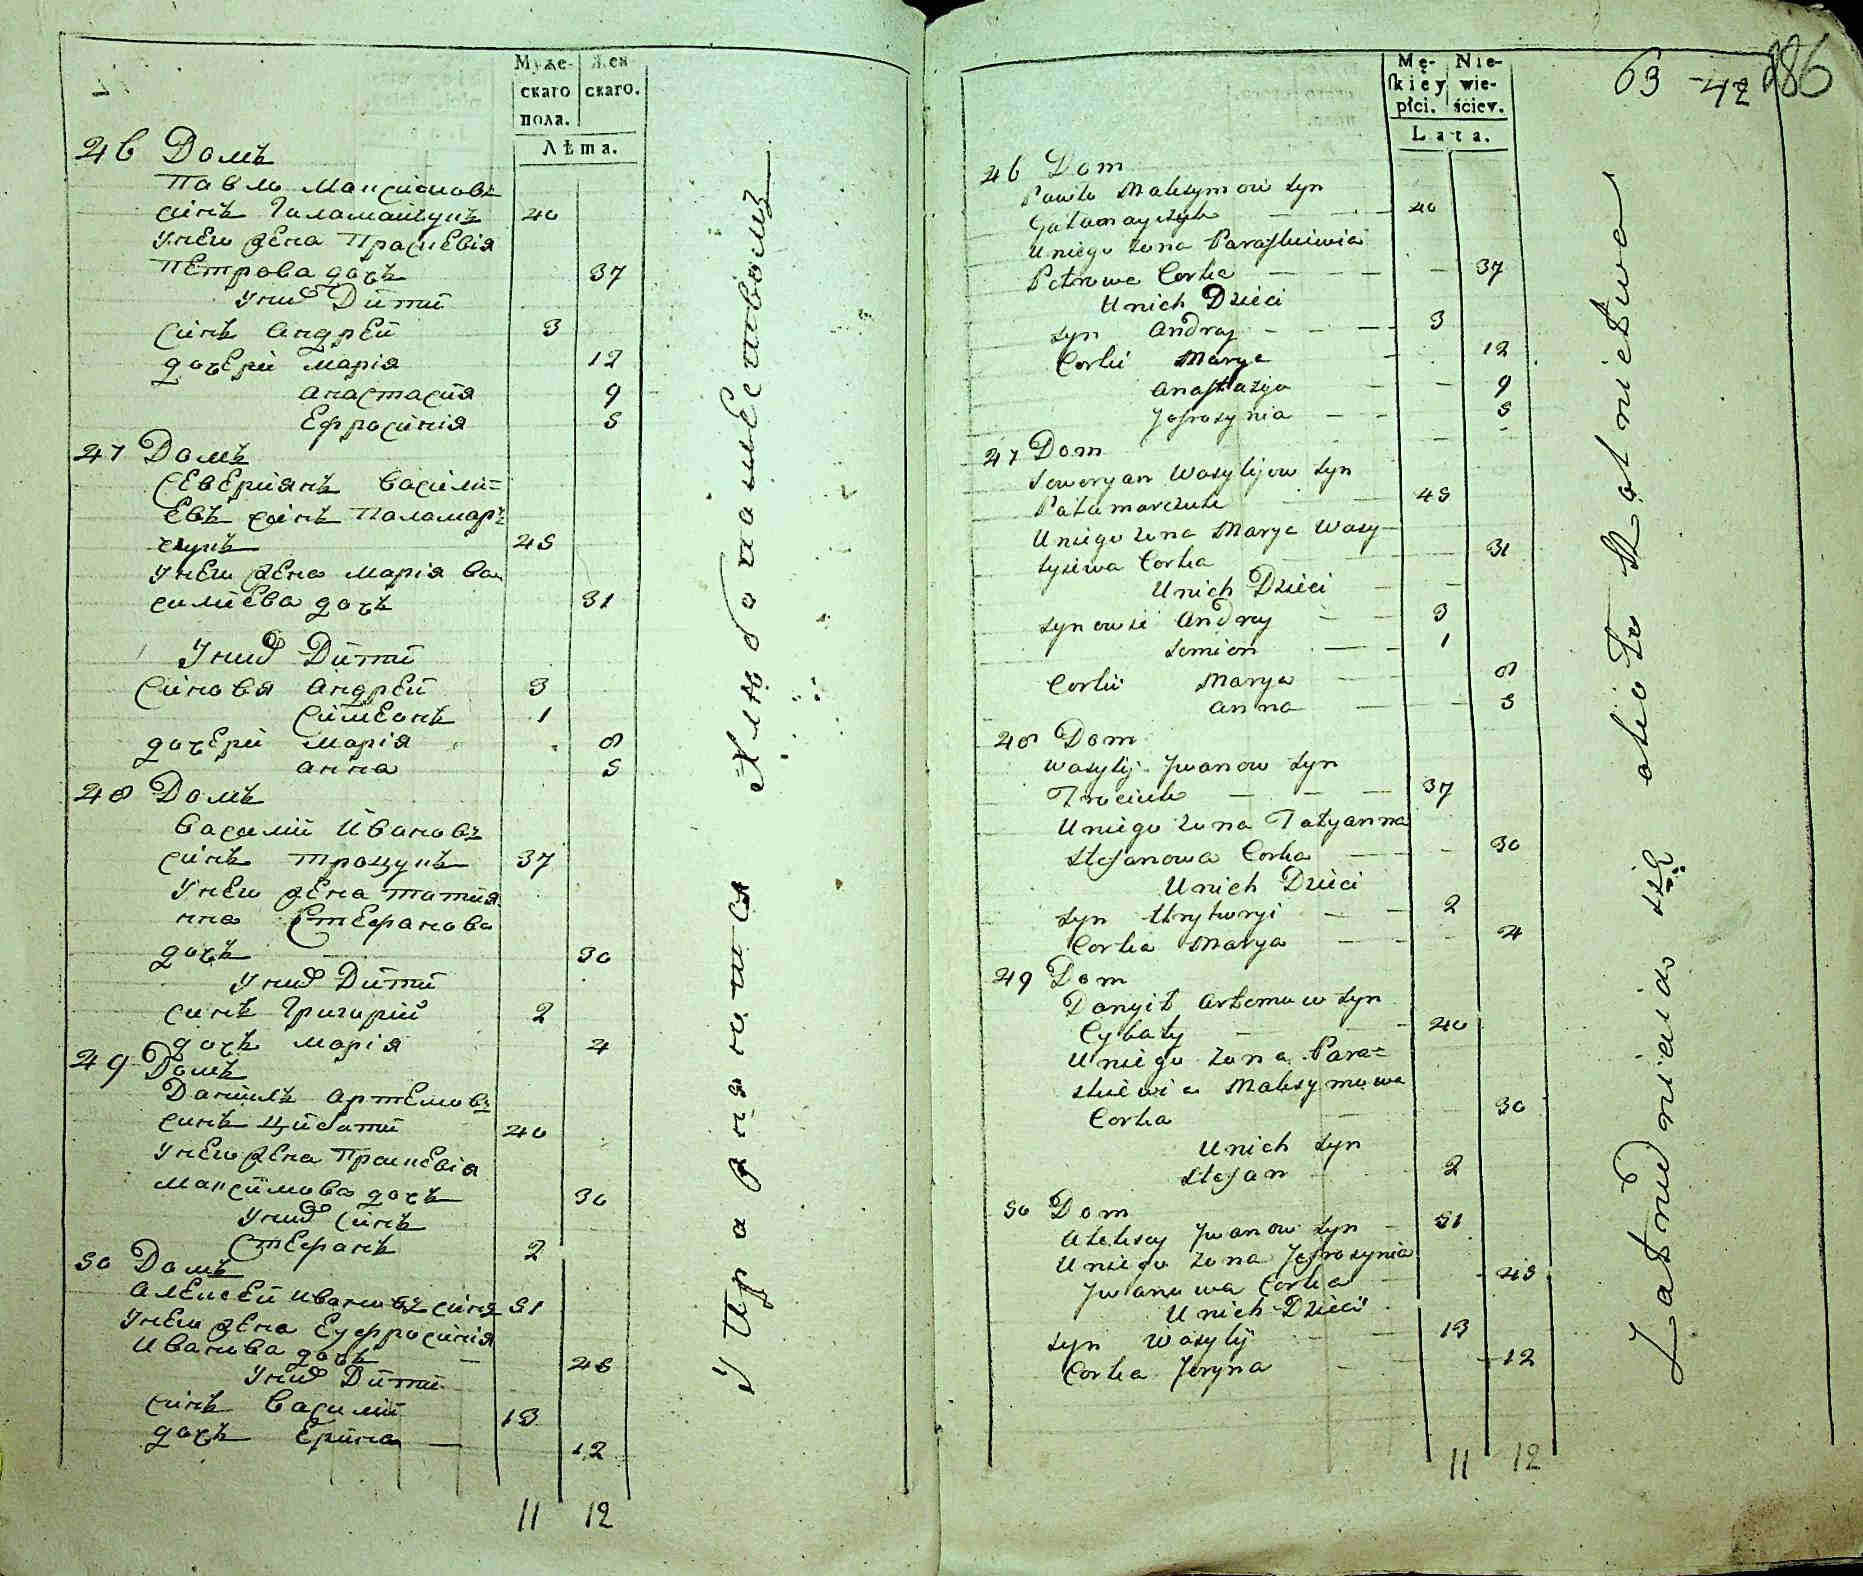 Муже-
скаго
пола.
Жен
скаго.
Лѣта.
46 Домъ
Павло Максимовъ
синъ Галамайчукъ 40
Унего жена Праскевія
Петрова дочъ 37
Уних Дити
Синъ Андрей 3
дочери Марія 12
Анастасия 9
Ефросинія 5
47 Домъ
Северіянъ Васили=
евъ синъ Паламар
чукъ 45
Унего жена Марія Ва
силиева дочъ 31
Уних Дити
Синовя Андрей 3
Симеонъ 1
дочери Марія 8
Анна 5
48 Домъ
Василий Ивановъ
синъ Троцукъ 37
Унего жена Татия
нна Стефанова
дочъ 30
Уних Дити
синъ Григорий 2
дочъ Марія 4
49 Домъ
Даниилъ Артемовъ
синъ Цибатий 40
Унего жена Праскевія
Максимова дочъ 30
Уних Синъ
Стефанъ 2
50 Домъ
Алексей Ивановъ синъ 51
Унего жена Еуфросинія
Иванова дочъ 45
Уних Дити
синъ Василий 13
дочъ Ерина 12
11 12
Mę-
skiey
płci.
Nie-
wie-
ściey.
Lata.
63 42 886
46 Dom
Pawło Maksymow syn
Gałamayczuk 40
Uniego żona Paraskiewia
Petrowa Corka 37
Unich Dzieci
syn Andrey 3
Corki Marya 12
Anastazya 9
Jefrosynia 5
47 Dom
Seweryan Wasylijow syn
Pałamarczuk 45
Uniego żona Marya Wasy
lyiewa Corka 31
Unich Dzieci
synowie Andrey 3
Semion 1
Corki Marya 8
Anna 5
48 Dom
Wasylij Jwanow syn
Trociuk 37
Uniego żona Tatyanna
Stefanowa Corka 30
Unich Dzieci
syn Hryhoryi 2
Corka Marya 4
49 Dom
Danyił Artemow syn
Cybaty 40
Uniego żona Para=
skiewia Maksymowa
Corka 30
Unich syn
Stefan 2
50 Dom
Aleksey Jwanow syn 51
Uniego żona Jefrosynia
Jwanowa Corka 45
Unich Dzieci
syn Wasylij 13
Corka Jeryna 12
11 12
Упражняются Хлѣбопашествомъ
Zatrudniaią się około Rolnictwa